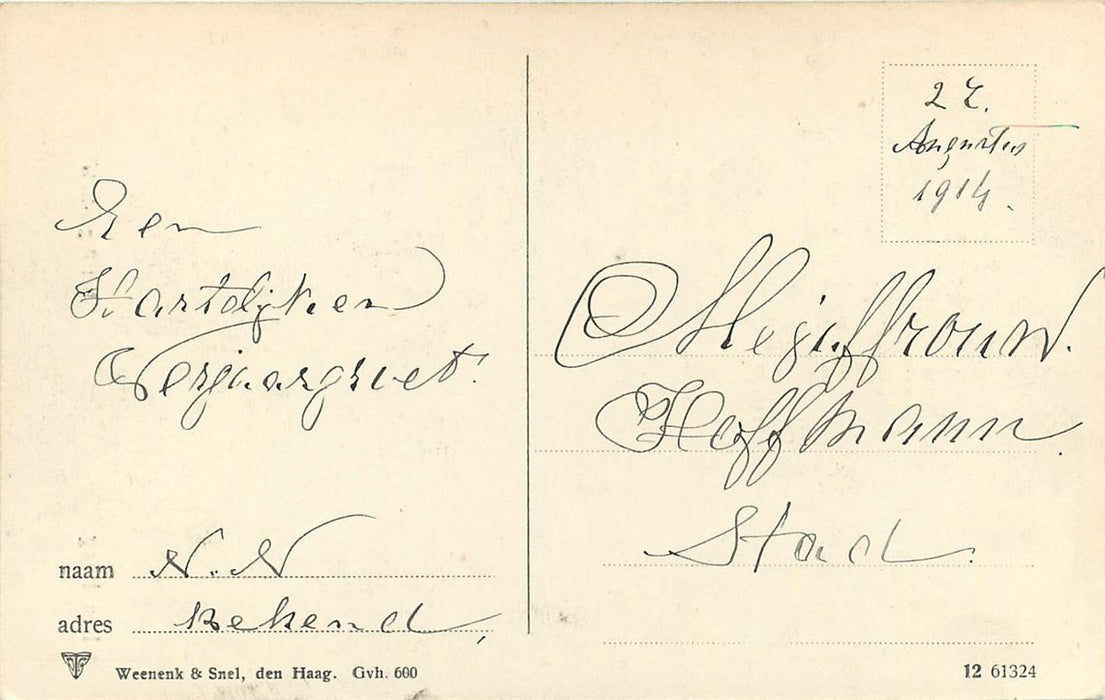 Een
Hartelijken
Verjaargroet.
naam N. N
adres Bekend,
Weenenk & Snel, den Haag. Gvh. 600
Augustus
1914.
Mejuffrouw.
Hoffmann.
Stad.
12 61324